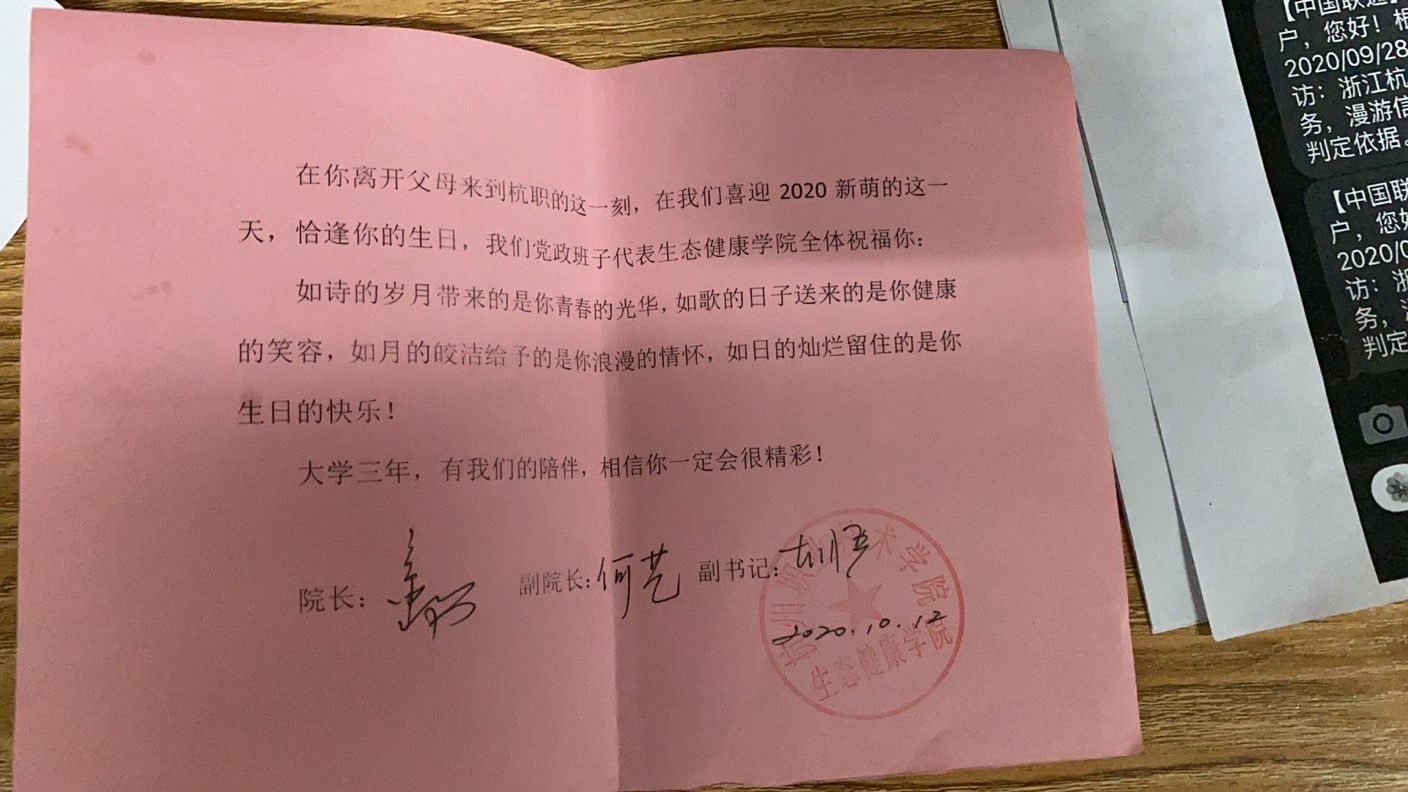 在你离开父母来到杭职的这一刻，在我们喜迎 2020 新萌的这一
天，恰逢你的生日，我们党政班子代表生态健康学院全体祝福你：
如诗的岁月带来的是你青春的光华，如歌的日子送来的是你健康
的笑容，如月的皎洁给予的是你浪漫的情怀，如日的灿烂留住的是你
生日的快乐！
大学三年，有我们的陪伴，相信你一定会很精彩！
院长：
副院长：何艺
副书记：
学院
2020.10.12
生态健康学院
【中国联通】
户，您好！根
2020/09/28
访：浙江杭
务，漫游信
判定依据。
【中国联
户，您好
2020/0
访：浙
务，
判定